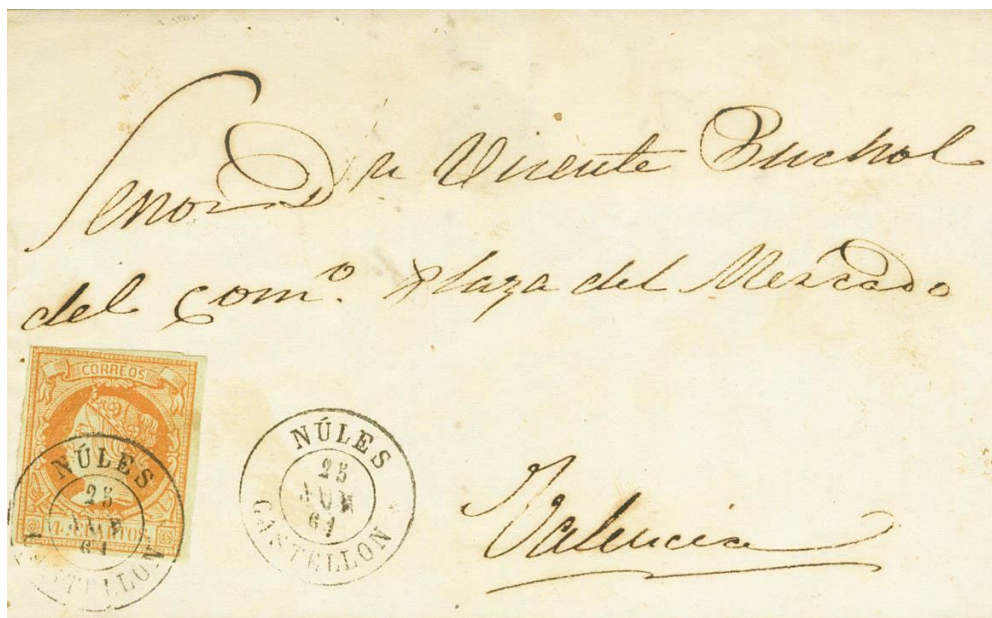 Señor Dn Vicente Buchol
del como. plaza del Mercado
CORREOS
4 CUARTOS
NÚLES
25
JUN
61
CASTELLON
NÚLES
25
JUN
61
CASTELLON
Valencia